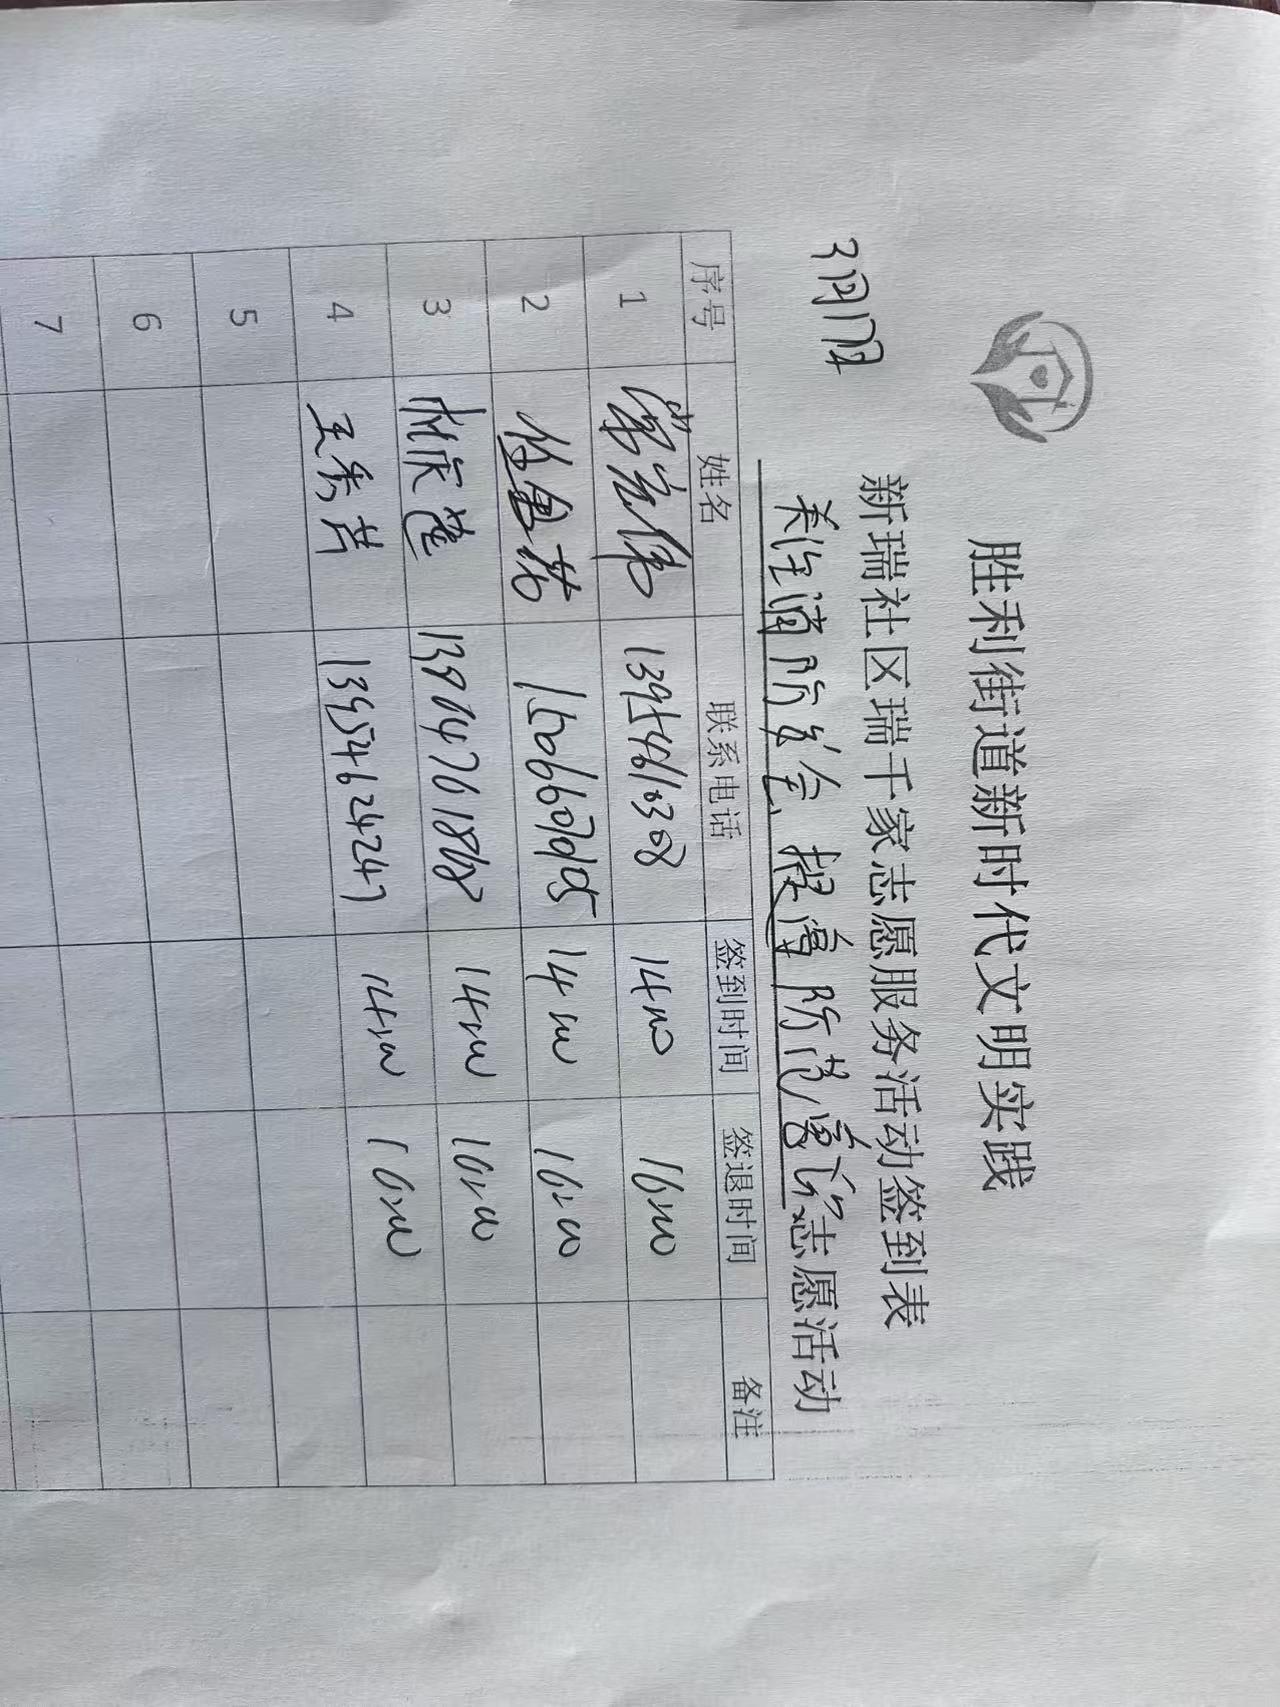 胜利街道新时代文明实践
新瑞社区瑞千家志愿服务活动签到表
3月17日 关注消防安全,提高防范意识志愿活动
序号 姓名 联系电话 签到时间 签退时间 备注
1 14:00 16:00
2 14:00 16:00
3 14:00 16:00
4 王秀芹 13954624247 14:00 16:00
5
6
7